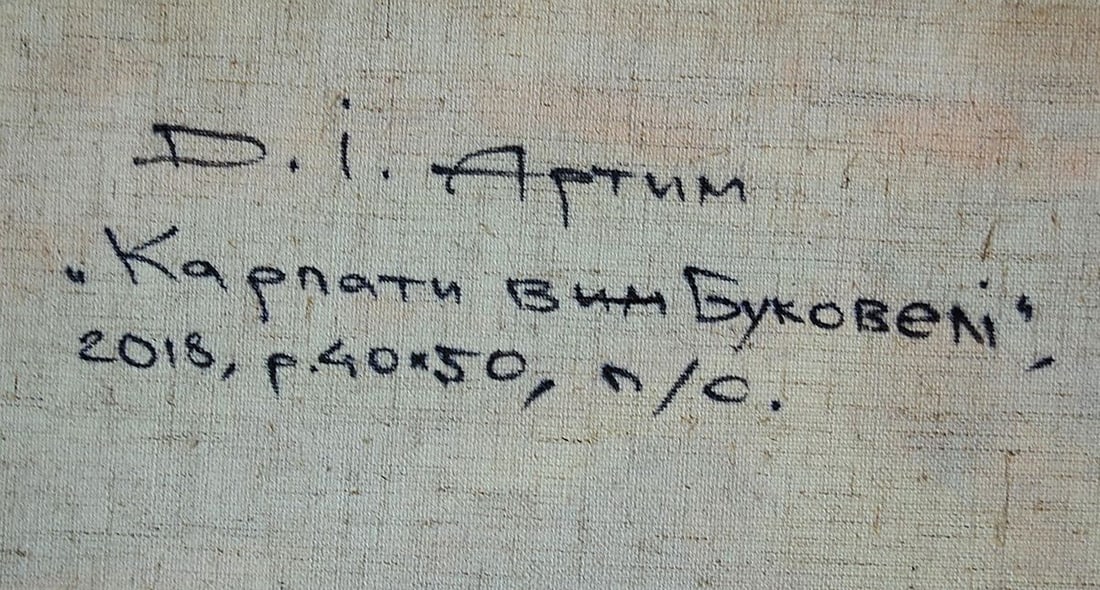 D. І. Артим
„Карпати Буковелі“,
2018, р.40x50, п/о.